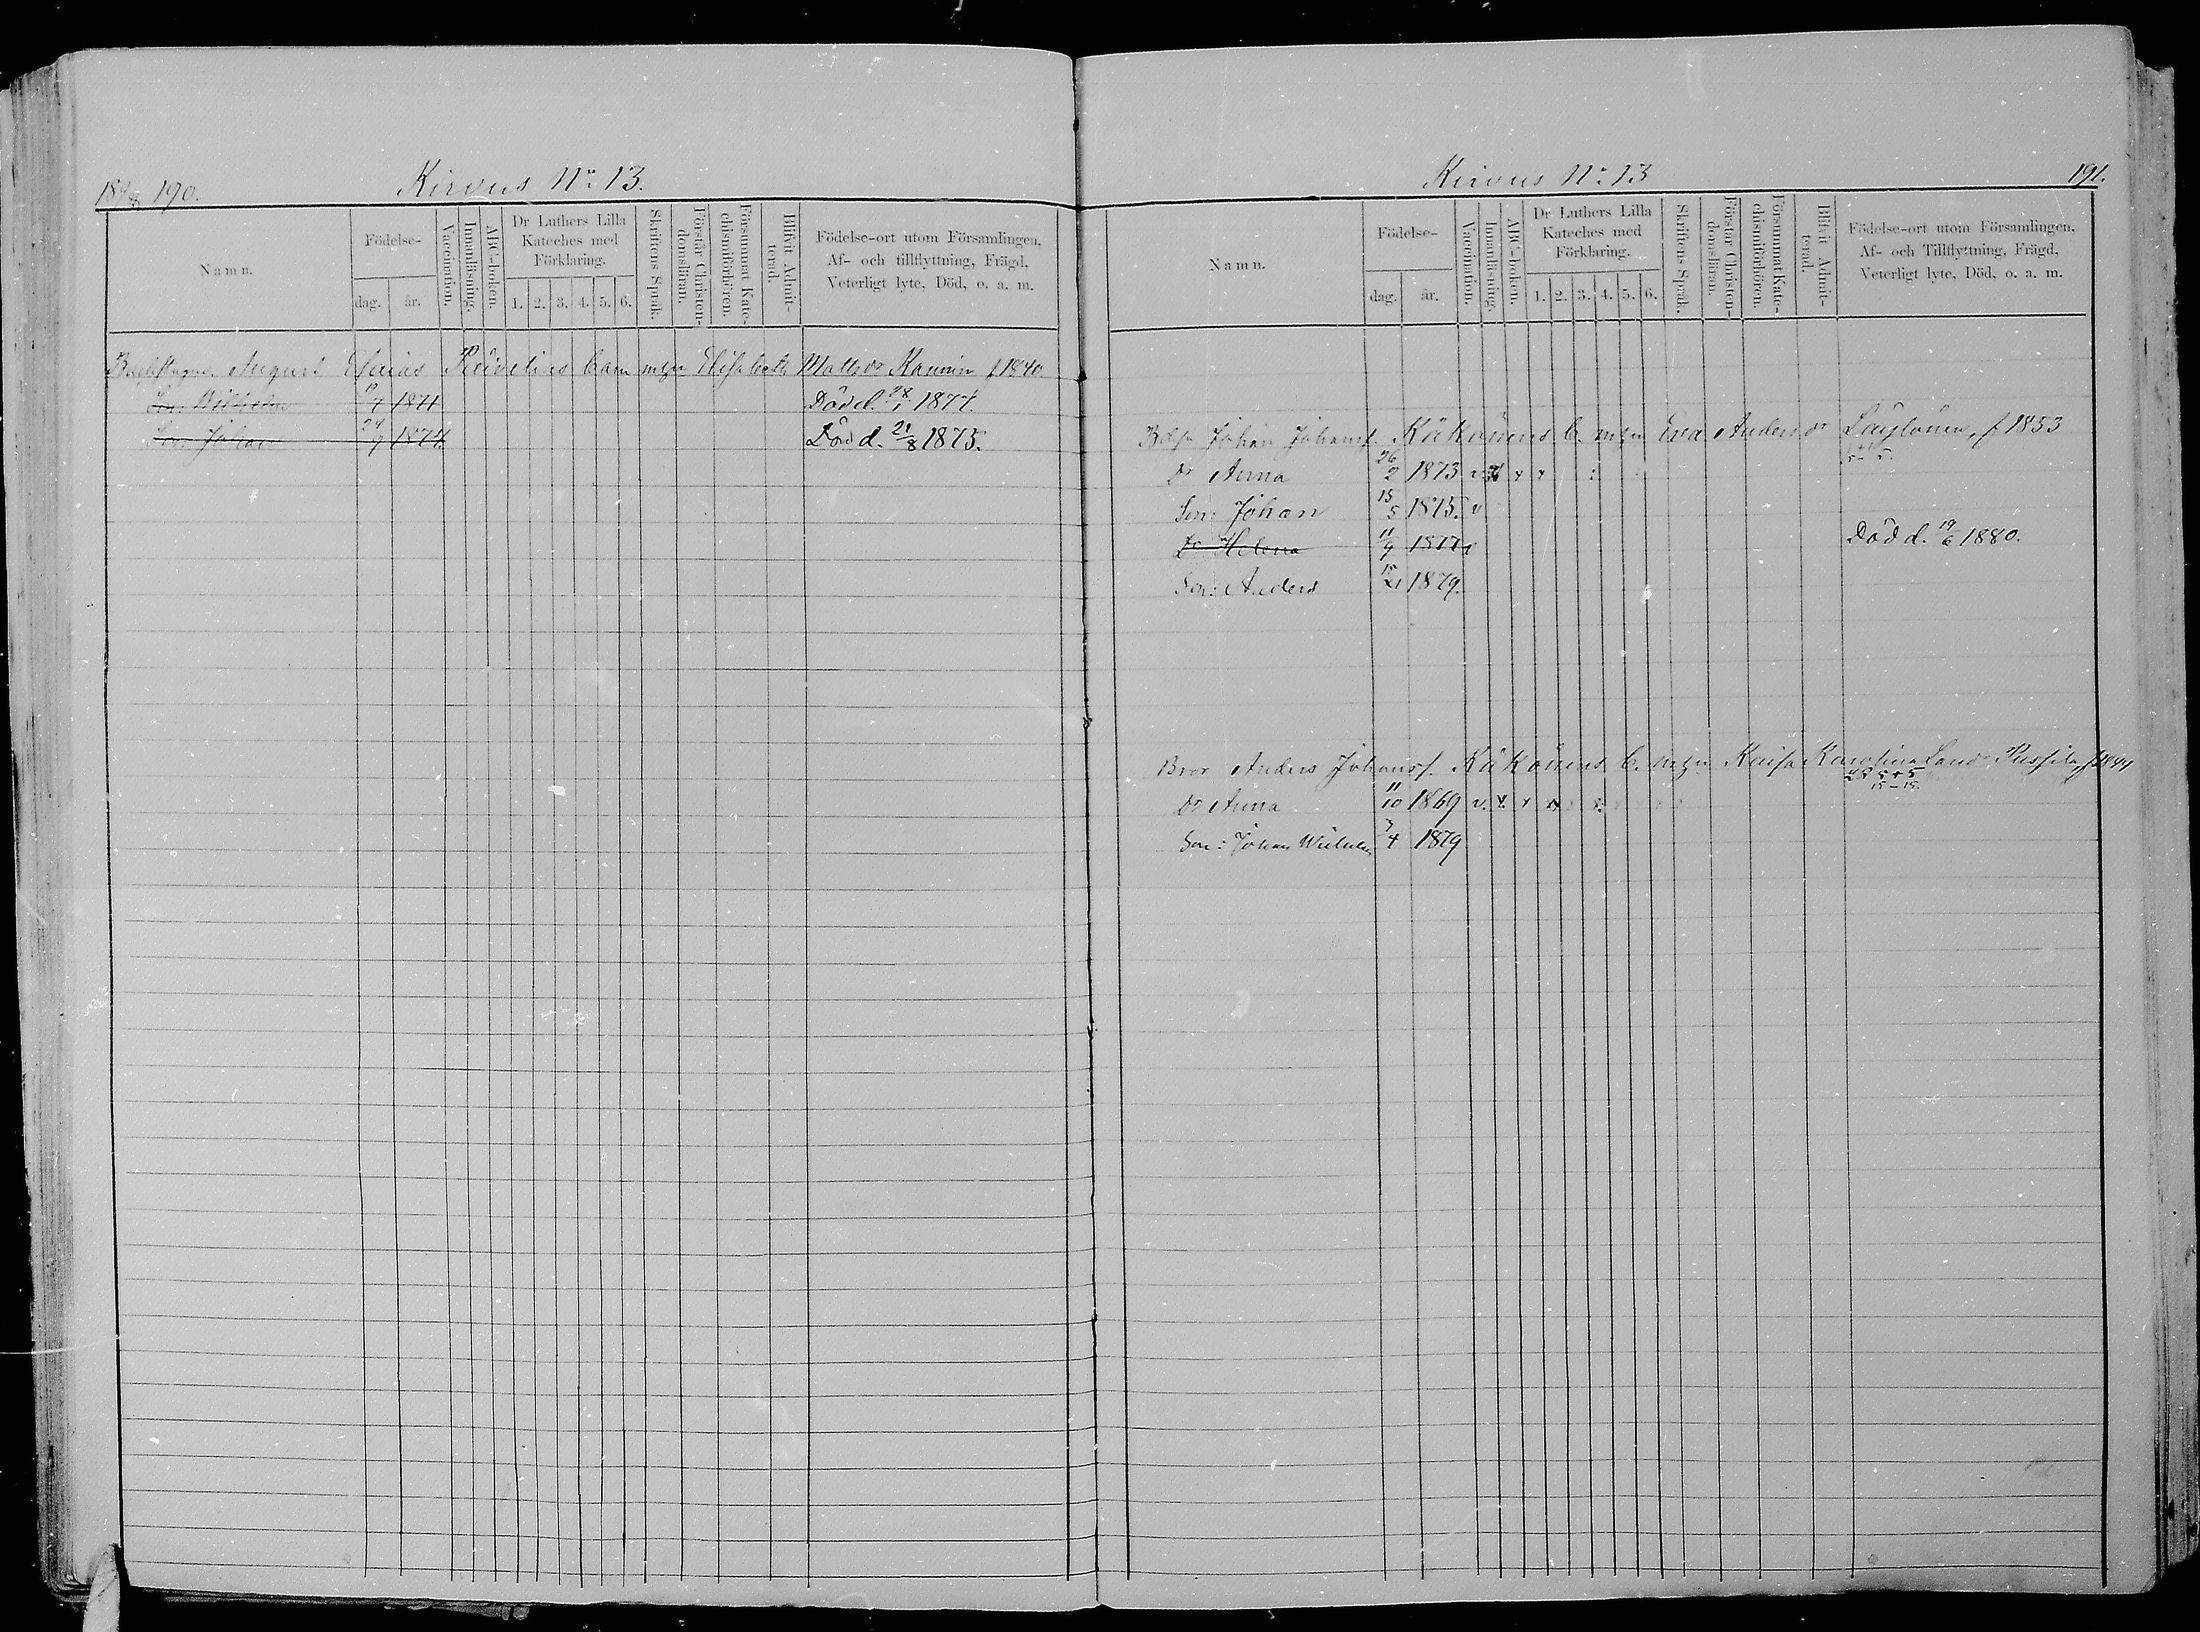 190.
Kirvus No 13.
Namn.
Födelse-
dag.
år.
Vaccination.
Innanläsning.
ABC-boken.
Dr Luthers Lilla
Kateches med
Förklaring.
1. 2. 3. 4. 5. 6.
Skriftens Språk.
Förstår Christen-
domsläran.
Försummat Kate-
chismiförhören.
Blifvit Admit-
terad.
Födelse-ort utom Församlingen,
Af- och tillflyttning, Frägd,
Veterligt lyte, Död, o. a. m.
August Esaias barn m. Elisabeth Mattsdr f 1840.
Son: Wilhelm 1871 Död d. 28/1 1877.
Son: Johan 24/7 1874 Död d. 21/8 1875.
Kirvus No 13
191.
Namn.
Födelse-
dag.
år.
Vaccination.
Innanläsning.
ABC-boken.
Dr Luthers Lilla
Kateches med
Förklaring.
1. 2. 3. 4. 5. 6.
Skriftens Språk.
Förstår Christen-
domsläran.
Försummat Kate-
chismiförhören.
Blifvit Admit-
terad.
Födelse-ort utom Församlingen,
Af- och Tillflyttning, Frägd,
Veterligt lyte, Död, o. a. m.
Johan Johanss. Käkönens b. m. Eva Andersdr f 1853
Dr Anna 26/2 1873 v
Son: Johan 15/5 1875. v
Dr Helena 11/9 1877 Död d. 19/6 1880.
Son: Anders 1879.
Bror Anders Johanss. Käkönens b. m. Kaisa Karolina
Dr Anna 11/10 1869 v.
15-15.
Son: Johan Wilhelm 3/4 1879